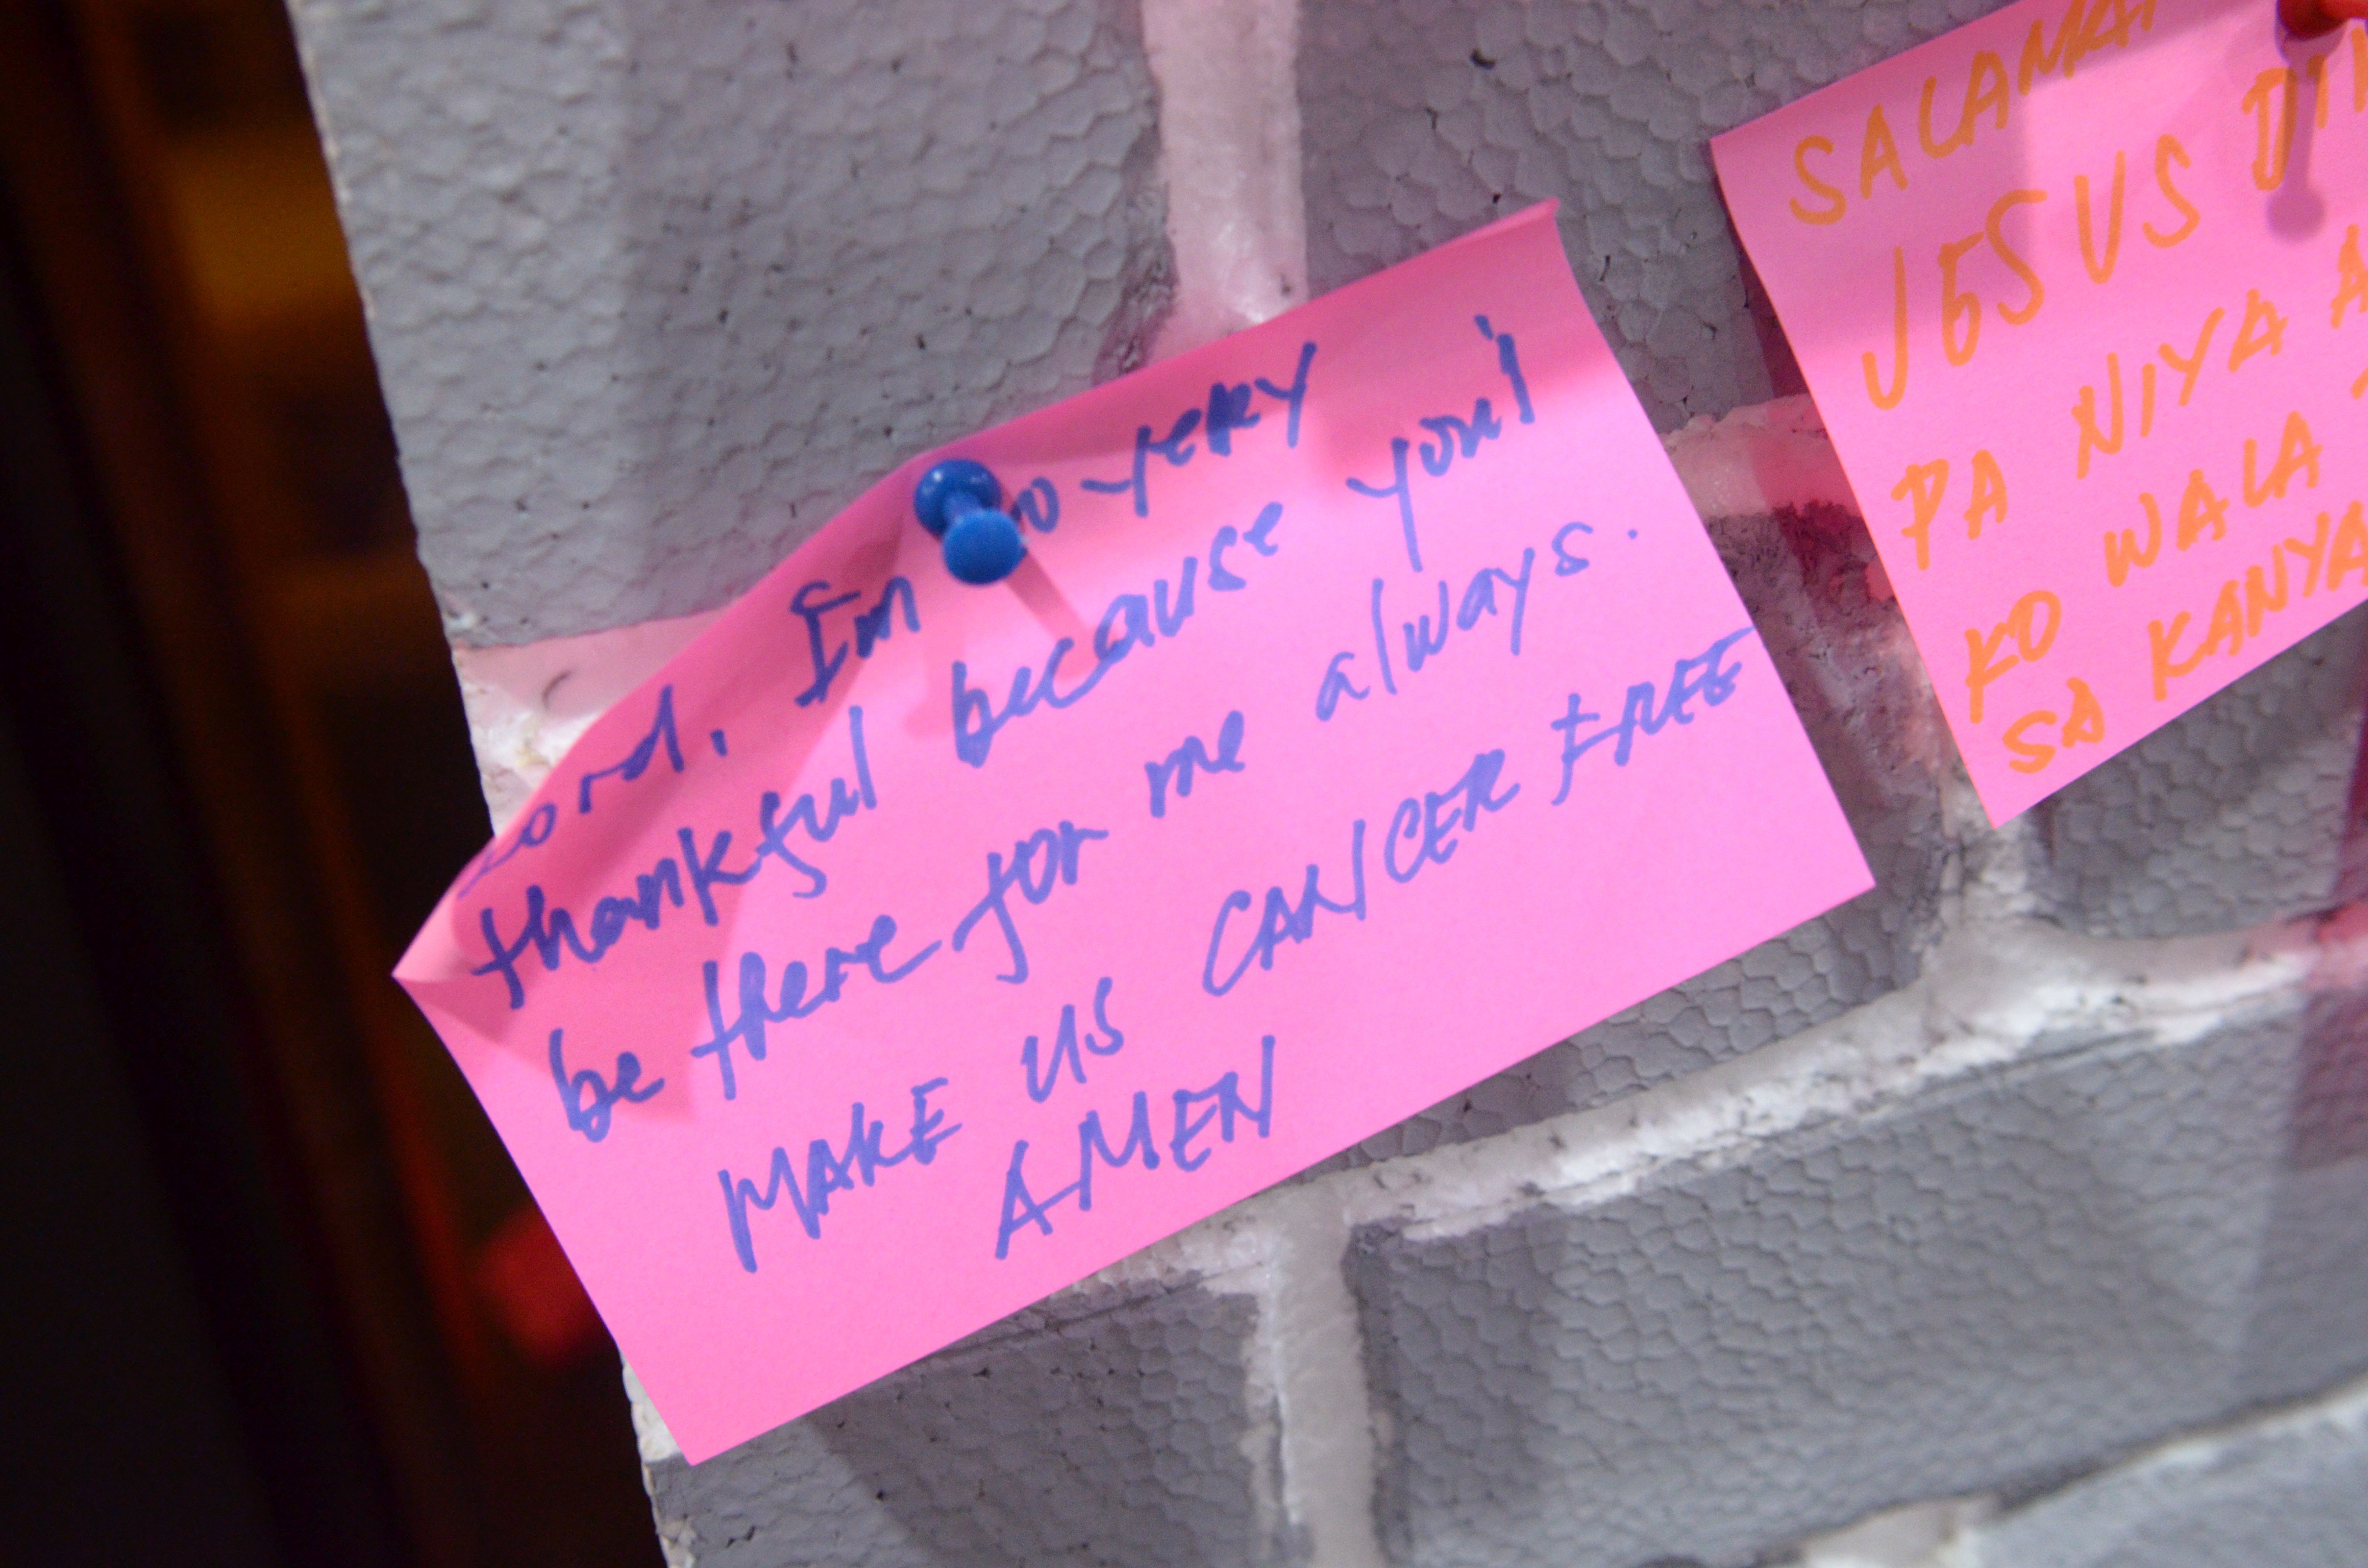 Lord, Im so very
thankful because you'l
be there for me always.
MAKE US CANCER FREE
AMEN
SALAMAT
JESUS
PA NIYA
KO WALA
SA KANYA